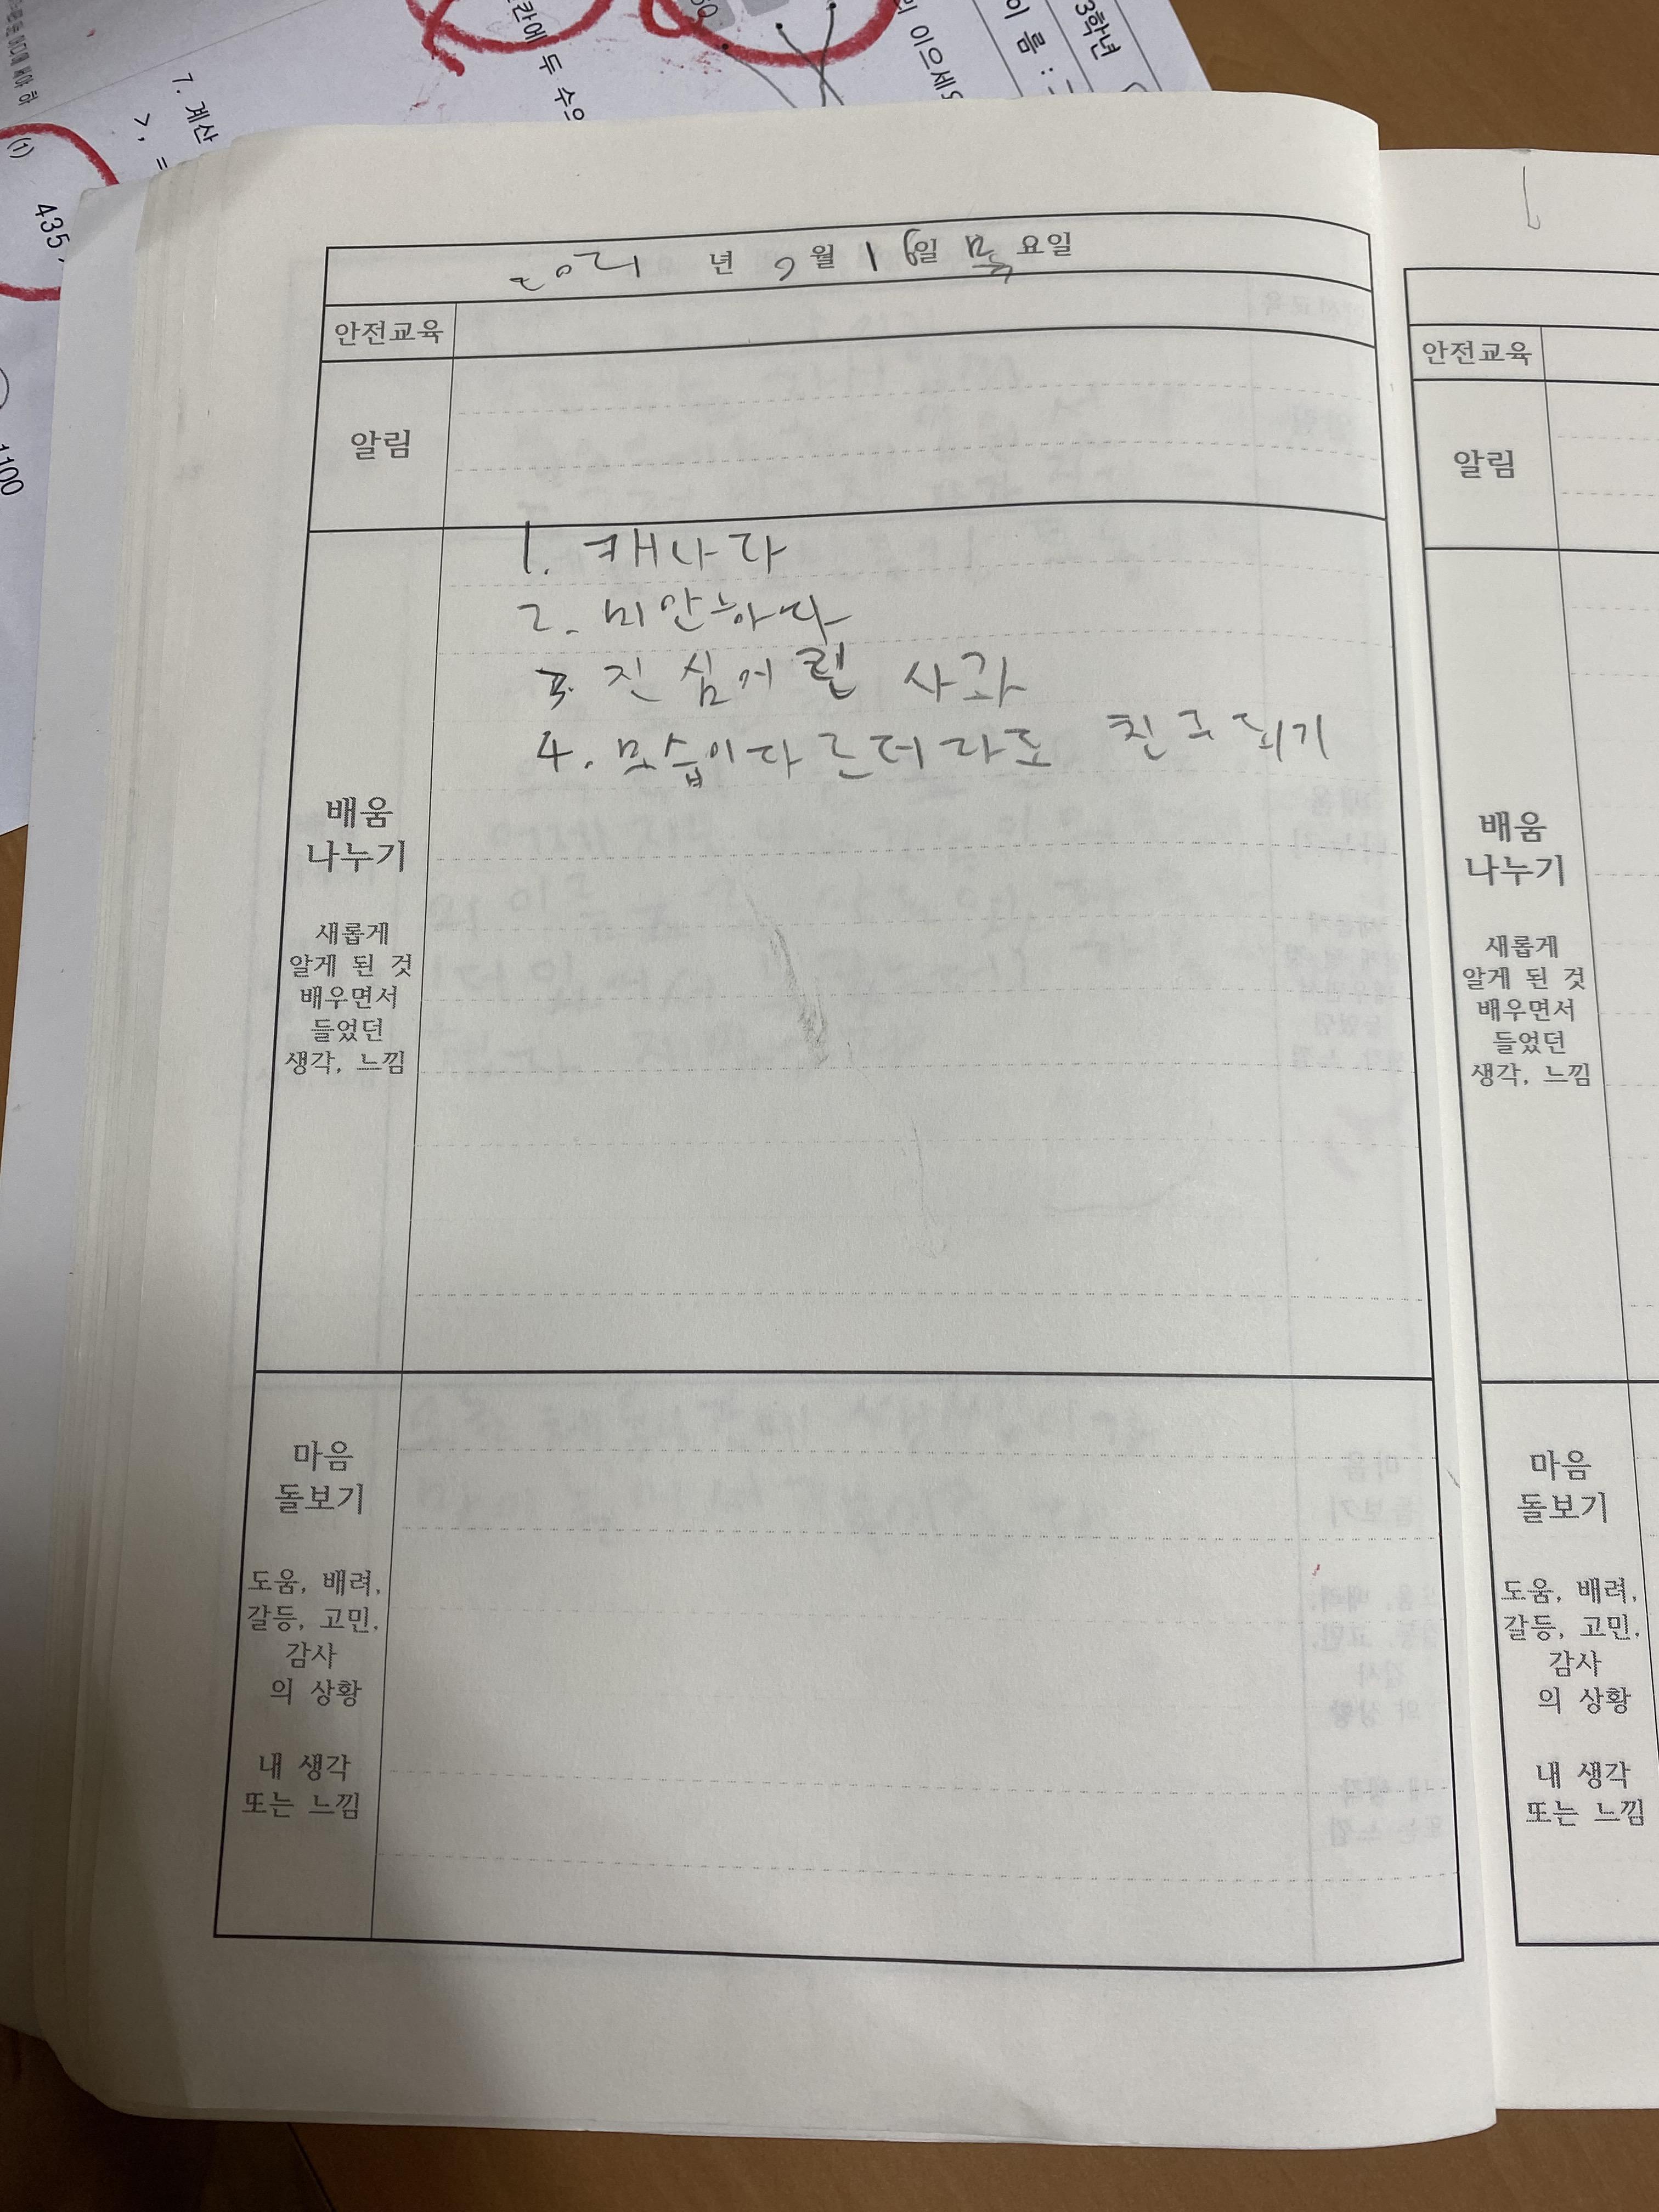 3학년
이 름 :
이으세요
칸에 두 수의
7. 계산
>, =
(1)
435
1100
2021 년 6 월 1 일 요일
안전교육
알림
1. 캐나다
2. 미안하다
3. 진심어린 사과
4. 모습이다르더라도 친구되기
배움
나누기
새롭게
알게 된 것
배우면서
들었던
생각, 느낌
마음
돌보기
도움, 배려,
갈등, 고민,
감사
의 상황
내 생각
또는 느낌
안전교육
알림
배움
나누기
새롭게
알게 된 것
배우면서
들었던
생각, 느낌
마음
돌보기
도움, 배려,
갈등, 고민,
감사
의 상황
내 생각
또는 느낌